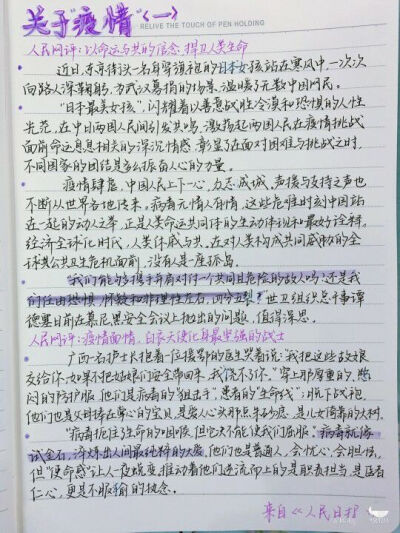 关于"疫情"<一>
RELIVE THE TOUCH OF PEN HOLDING
人民网评:以命运与共的信念,捍卫人类生命
近日,东京街头一名身穿旗袍的日本女孩站在寒风中,一次次
向路人深鞠躬,为武汉募捐的场景,温暖了无数中国网民。
"日本最美女孩",闪耀着以善意战胜冷漠和恐惧的人性
光芒,在中日两国人民间引发共鸣,激荡起两国人民在疫情挑战
面前命运息息相关的深沉情感,彰显了在面对困难与挑战之时,
不同国家的团结是多么振奋人心的力量。
疫情肆虐,中国人民上下一心,众志成城,声援与支持之声也
不断从世界各地传来。病毒无情人有情,这些危难时刻中国站
在一起的动人之举,正是人类命运共同体的生动体现和最好诠释。
经济全球化时代,人类休戚与共,在对人类构成共同威胁的全
球公共卫生危机面前,没有人是一座孤岛。
"我们能够携手并肩对付一个共同且危险的敌人吗?还是我
们任由恐惧,怀疑和非理性左右,四分五裂?"世卫组织总干事谭
德塞日前在慕尼黑安全会议上抛出的问题,值得深思。
人民网评:疫情面前,白衣天使化身最坚强的战士
广西一名护士长抱着一位接班的医生哭着说:"我把这些姑娘
交给你,如果不把姑娘们安全带回来,我饶不了你。"穿上那厚重的,憋
闷的防护服,他们是病毒的"狙击手",患者的"生命线";脱下战袍,
他们也是父母捧在掌心的宝贝,是爱人心头那点朱砂痣,是儿女倚靠的大树。
"病毒扼住生命的咽喉,但它决不能使我们屈服。"病毒就像
试金石,淬炼出人间最纯粹的大爱,他们也是普通人,会忧心,会胆怯,
但"使命感"让人一夜蜕变,推动着他们逆流而上的是职责担当,是医者
仁心,更是不服输的执念。
来自《人民日报